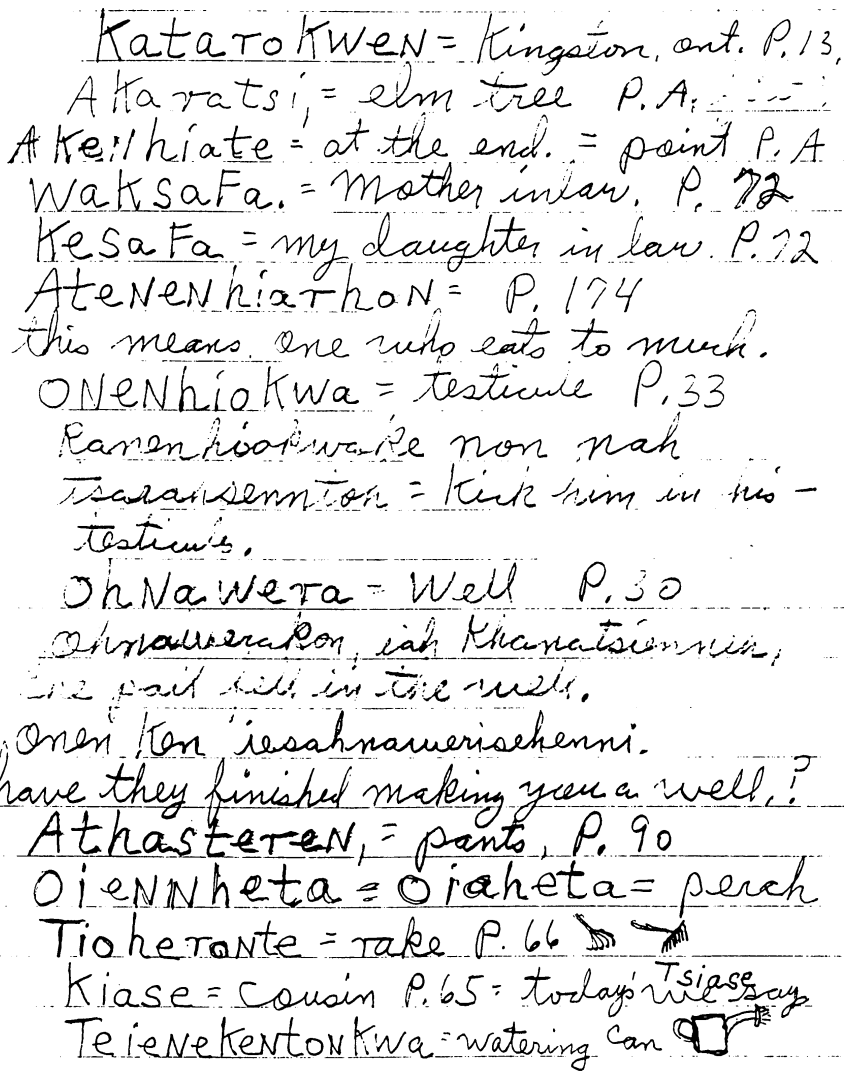 Katarokwen = Kingston, ont. P. 13,
Akaratsi, = elm tree P. A.
Akeihiate = at the end. = point P. A
Waksafa. = Mother inlaw. P. 72
Kesafa = my daughter in law. P. 72
Atenenhiarhon = P. 174
this means one who eats to much.
Onenhiokwa = testicule P. 33
non nah
= Kick him in his -
testicules.
Ohnawera = Well P. 30
Ohnawerakon, iah
The pail fell in the well.
Onen Ken iesahnawerisehenni.
have they finished making you a well,?
Athasteren, = pants, P. 90
Oiennheta = Oiaheta = perch
Tioheronte = rake P. 66
Kiase = cousin P. 65 = today's we say Tsiase
Teienekentonkwa = watering can